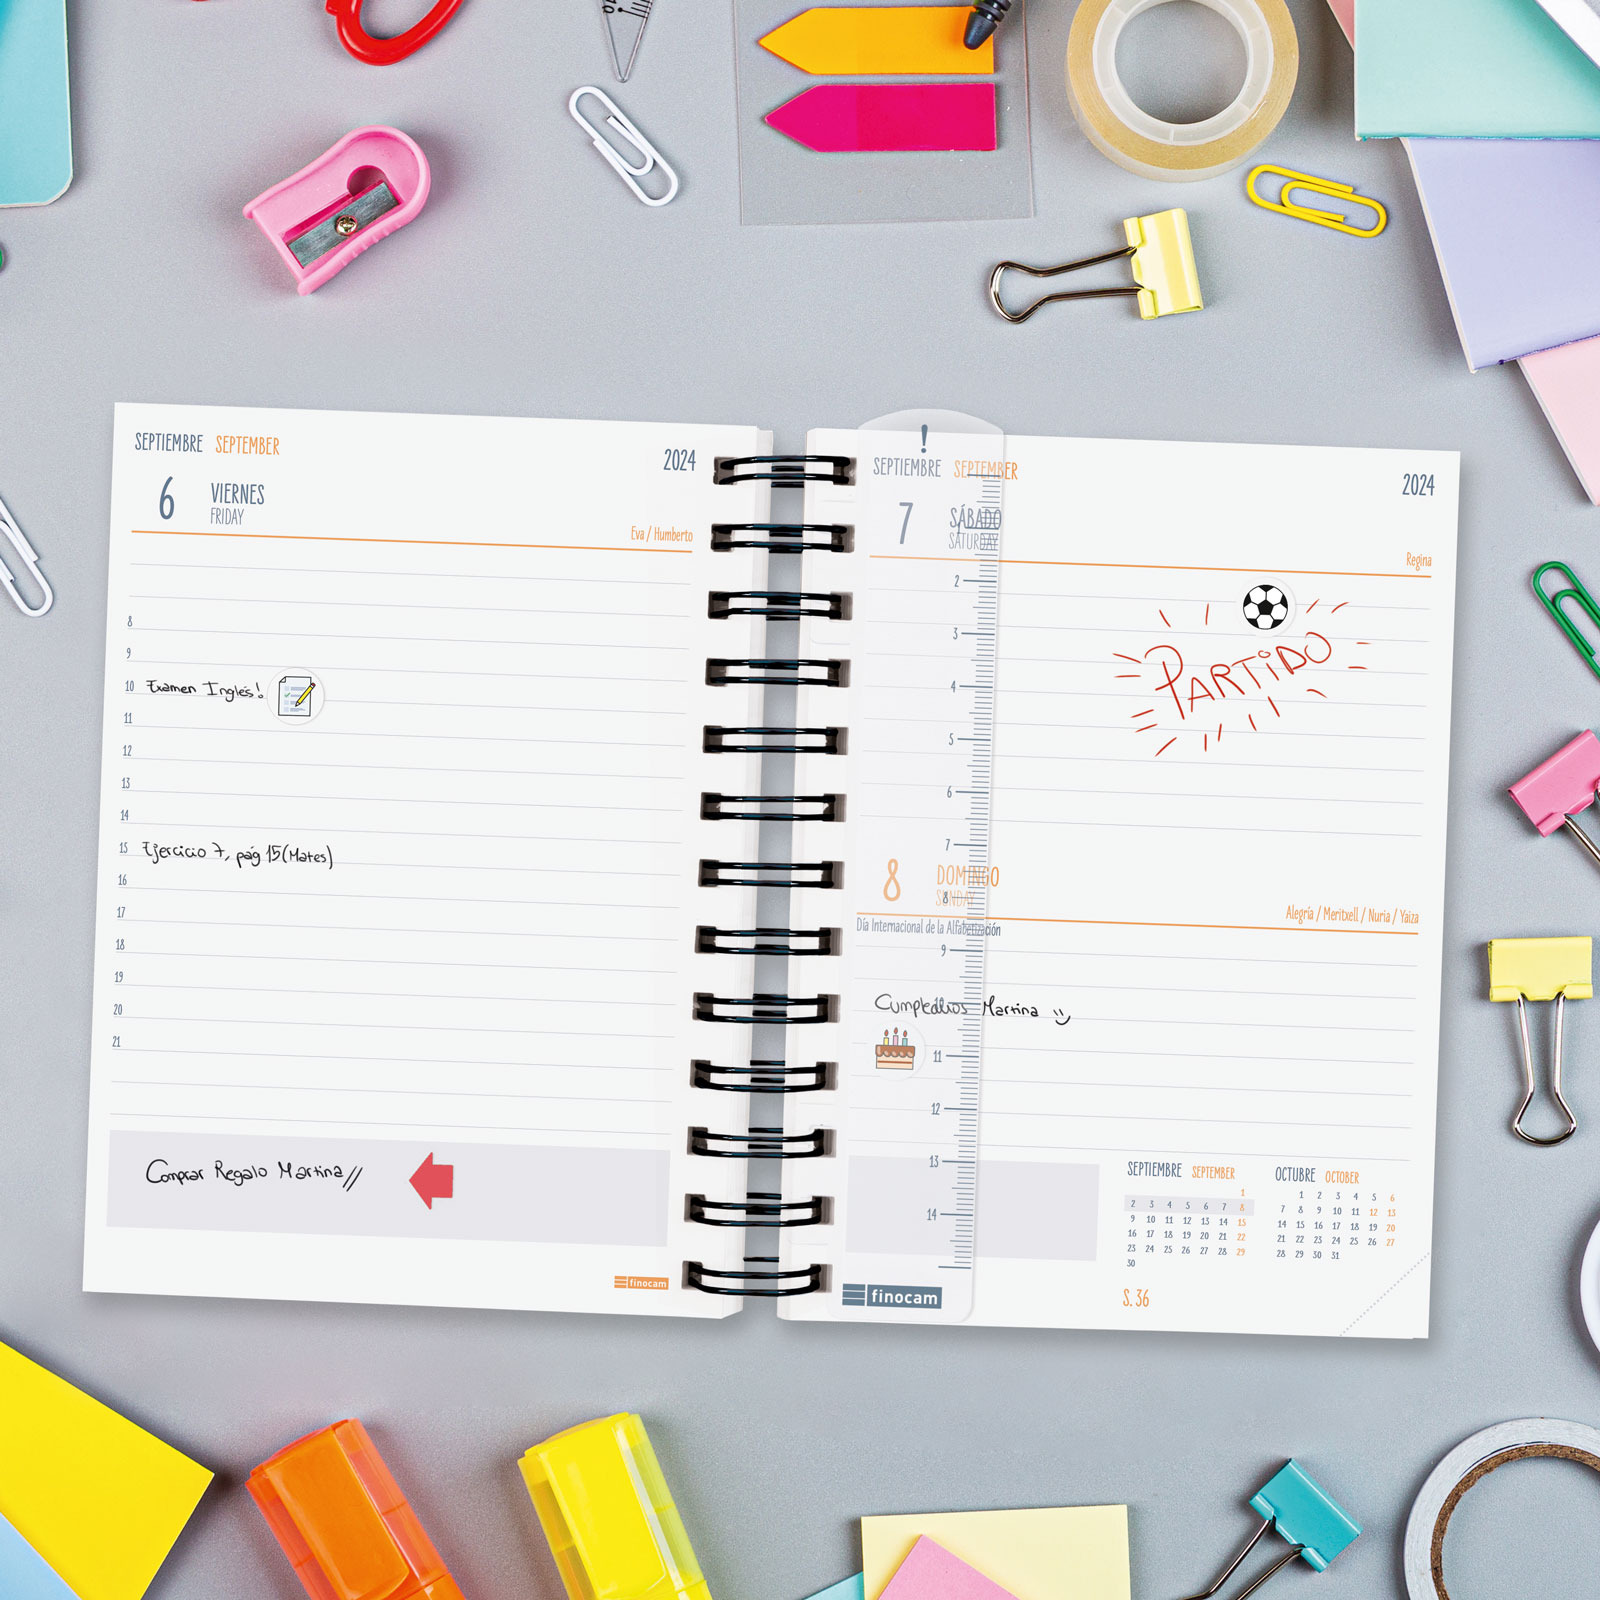 SEPTIEMBRE SEPTEMBER
2024
6 VIERNES
FRIDAY
Eva / Humberto
8
9
10 Examen Inglés!
11
12
13
14
15 Ejercicio 7, pág 15 (Mates)
16
17
18
19
20
21
Comprar Regalo Martina//
finocam
!
SEPTIEMBRE SEPTEMBER
2024
7 SÁBADO
SATURDAY
Regina
PARTIDO
8 DOMINGO
SUNDAY
Alegría / Meritxell / Nuria / Yaiza
Día Internacional de la Alfabetización
Cumpleaños Martina
2
3
4
5
6
7
8
9
10
11
12
13
14
finocam
SEPTIEMBRE SEPTEMBER
1
2 3 4 5 6 7 8
9 10 11 12 13 14 15
16 17 18 19 20 21 22
23 24 25 26 27 28 29
30
OCTUBRE OCTOBER
1 2 3 4 5 6
7 8 9 10 11 12 13
14 15 16 17 18 19 20
21 22 23 24 25 26 27
28 29 30 31
S. 36